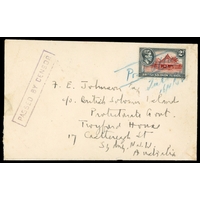 PASSED BY CENSOR
BRITISH SOLOMON ISLANDS
F. E. Johnson Esq
c/o British Solomon Islands
Protectorate Govt.
House
17 Castlereagh St
Sydney N.S.W.
Australia